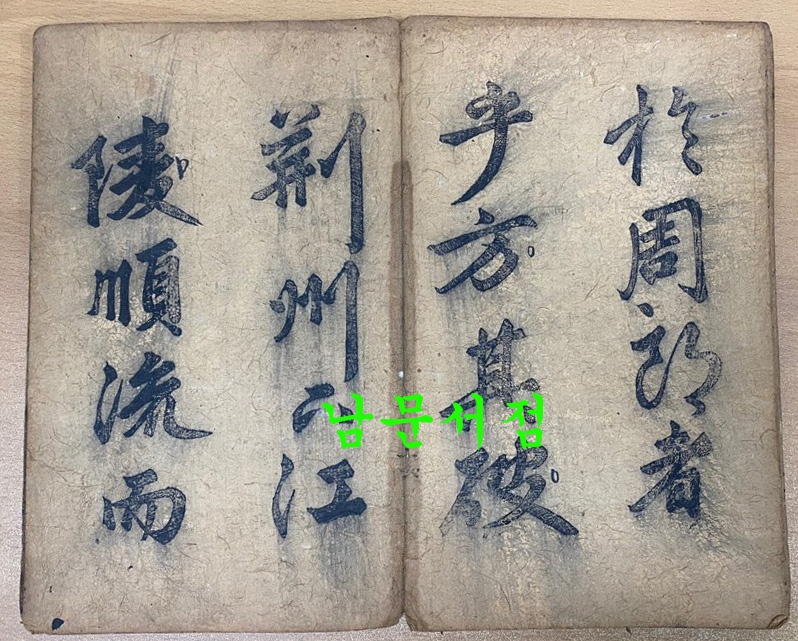 於周郎者
乎方其破
荊州下江
陵順流而
남문서점